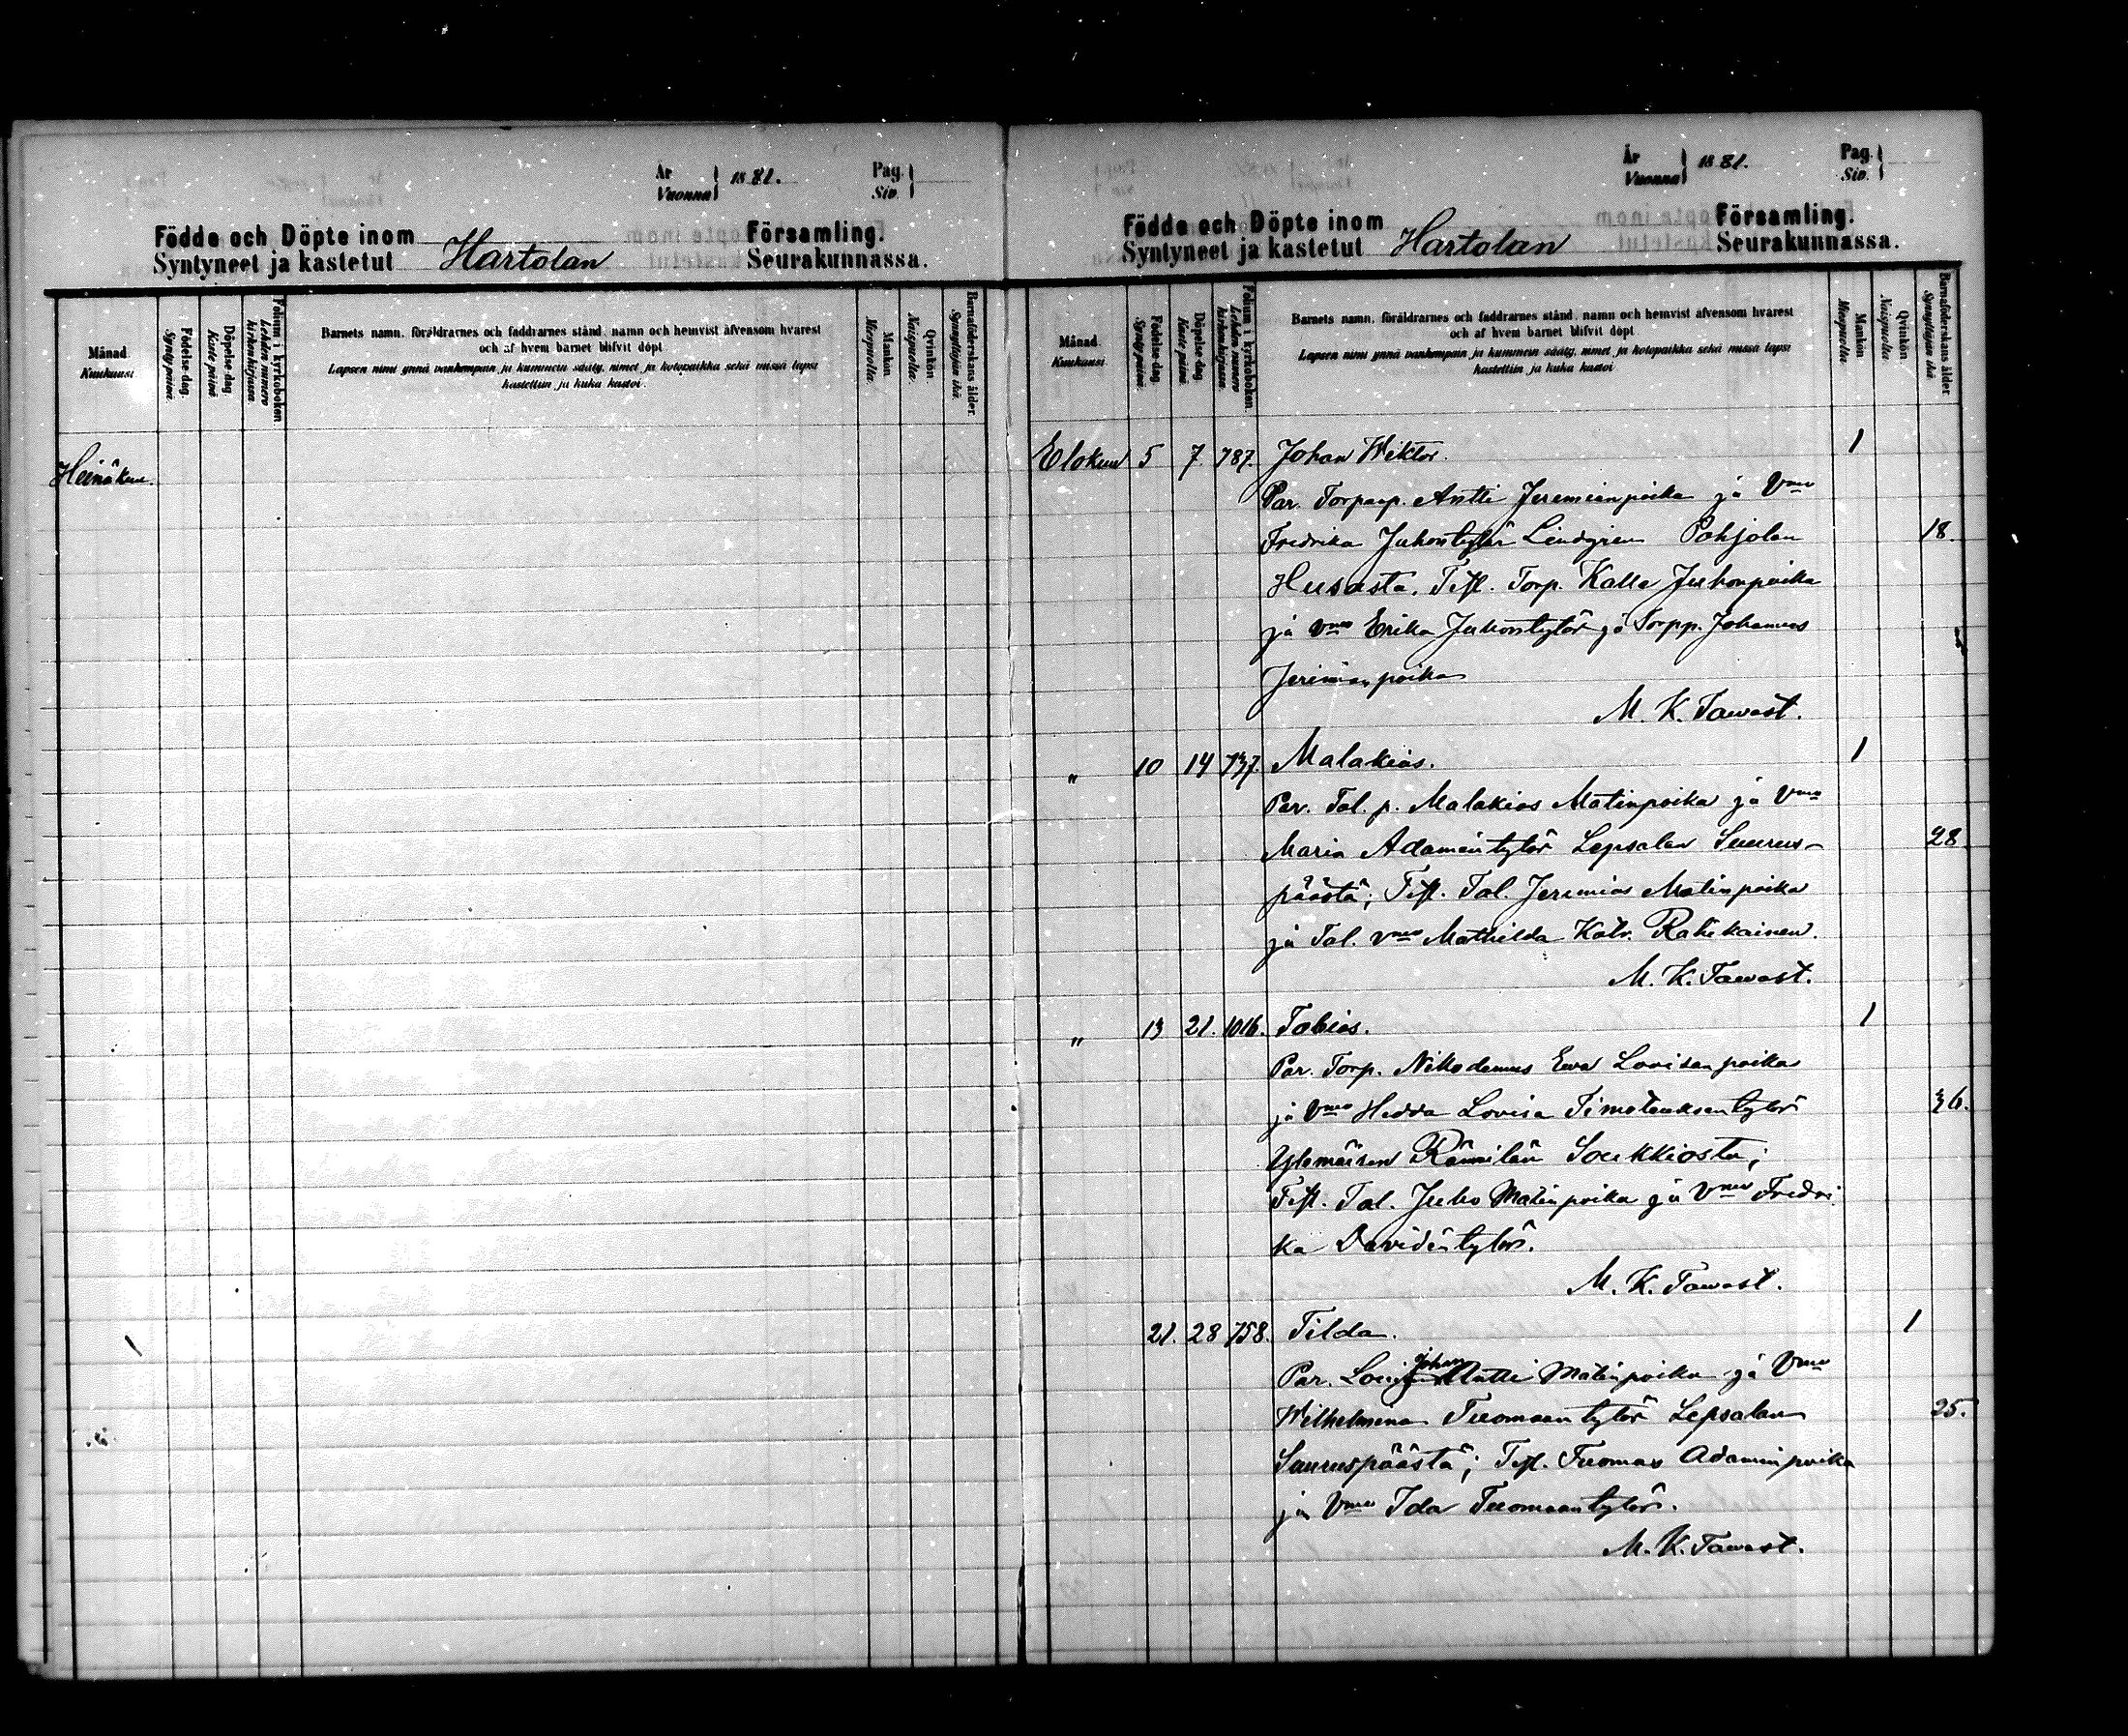 År
Vuonna 1881.
Pag.
Siv.
Födde och Döpte inom
Syntyneet ja kastetut
Hartolan
Församling.
Seurakunnassa.
Månad.
Kuukausi
Födelse-dag.
Syntypäivä.
Döpelse-dag
Kaste päivä
Folium i kyrkoboken.
Lehden numero kirkonkirjassa.
Barnets namn, föräldrarnes och faddrarnes stånd, namn och hemvist äfvensom hvarest
och af hvem barnet blifvit döpt.
Lapsen nimi ynnä vanhempain ja kummein sääty, nimet ja kotopaikka sekä missä lapsi
kastettiin ja kuka kastoi.
Mankön
Miespuolta.
Qvinkön.
Naispuolta.
Barnaföderskans ålder.
Synnyttäjän ikä.
Heinäkuu.
År
Vuonna 1881.
Pag.
Siv.
Födde och Döpte inom
Syntyneet ja kastetut
Hartolan
Församling.
Seurakunnassa.
Månad.
Kuukausi
Födelse-dag
Syntypäivä.
Döpelse-dag.
Kaste päivä
Folium i kyrkoboken.
Lehden numero kirkonkirjassa.
Barnets namn, föräldrarnes och faddrarnes stånd, namn och hemvist äfvensom hvarest
och af hvem barnet blifvit döpt.
Lapsen nimi ynnä vanhempain ja kummein sääty, nimet ja kotopaikka sekä missä lapsi
kastettiin ja kuka kastoi
Mankön
Miespuolta
Qvinkön
Naispuolta.
Barnaföderskans ålder
Synnyttäjän ikä
Elokuu 5 7. 787. Johan Wiktor. 1
Par. Torpanp. Antti Jeremianpoika ja Vmo
Fredrika Juhontytär Lindgren Pohjolan 18.
Husasta. Test. Torp. Kalle Juhonpoika
ja Vmo Erika Juhontytär ja Torpp. Johannes
Jeremianpoika
M. K. Tawast.
" 10 14 737. Malakias. 1
Par. Tal. p. Malakias Matinpoika ja Vmo
Maria Adamintytär Lepsalan Suurus- 28.
päästä; Test. Tal. Jeremias Matinpoika
ja Tal. vmo Mathilda Katr. Rahikainen.
M. K. Tawast.
" 13 21. 1016. Tobias. 1
Par. Torp. Nikodemus Ewa Lovisanpoika
ja Vmo Hedda Lovisa Timoteuksentytär 36.
Ylemäisen Rämilän Soukkiosta;
Test. Tal. Juho Matinpoika ja Vmo Fredri
ka Davidintytär.
M. K. Tawast.
21. 28 758. Tilda. 1
Johan
Par. Antti Matinpoika ja Vmo
Wilhelmina Tuomaantytär Lepsalan 25.
Suuruspäästä; Test. Tuomas Adaminpoika
ja Vmo Ida Tuomaantytär.
M. K. Tawast.